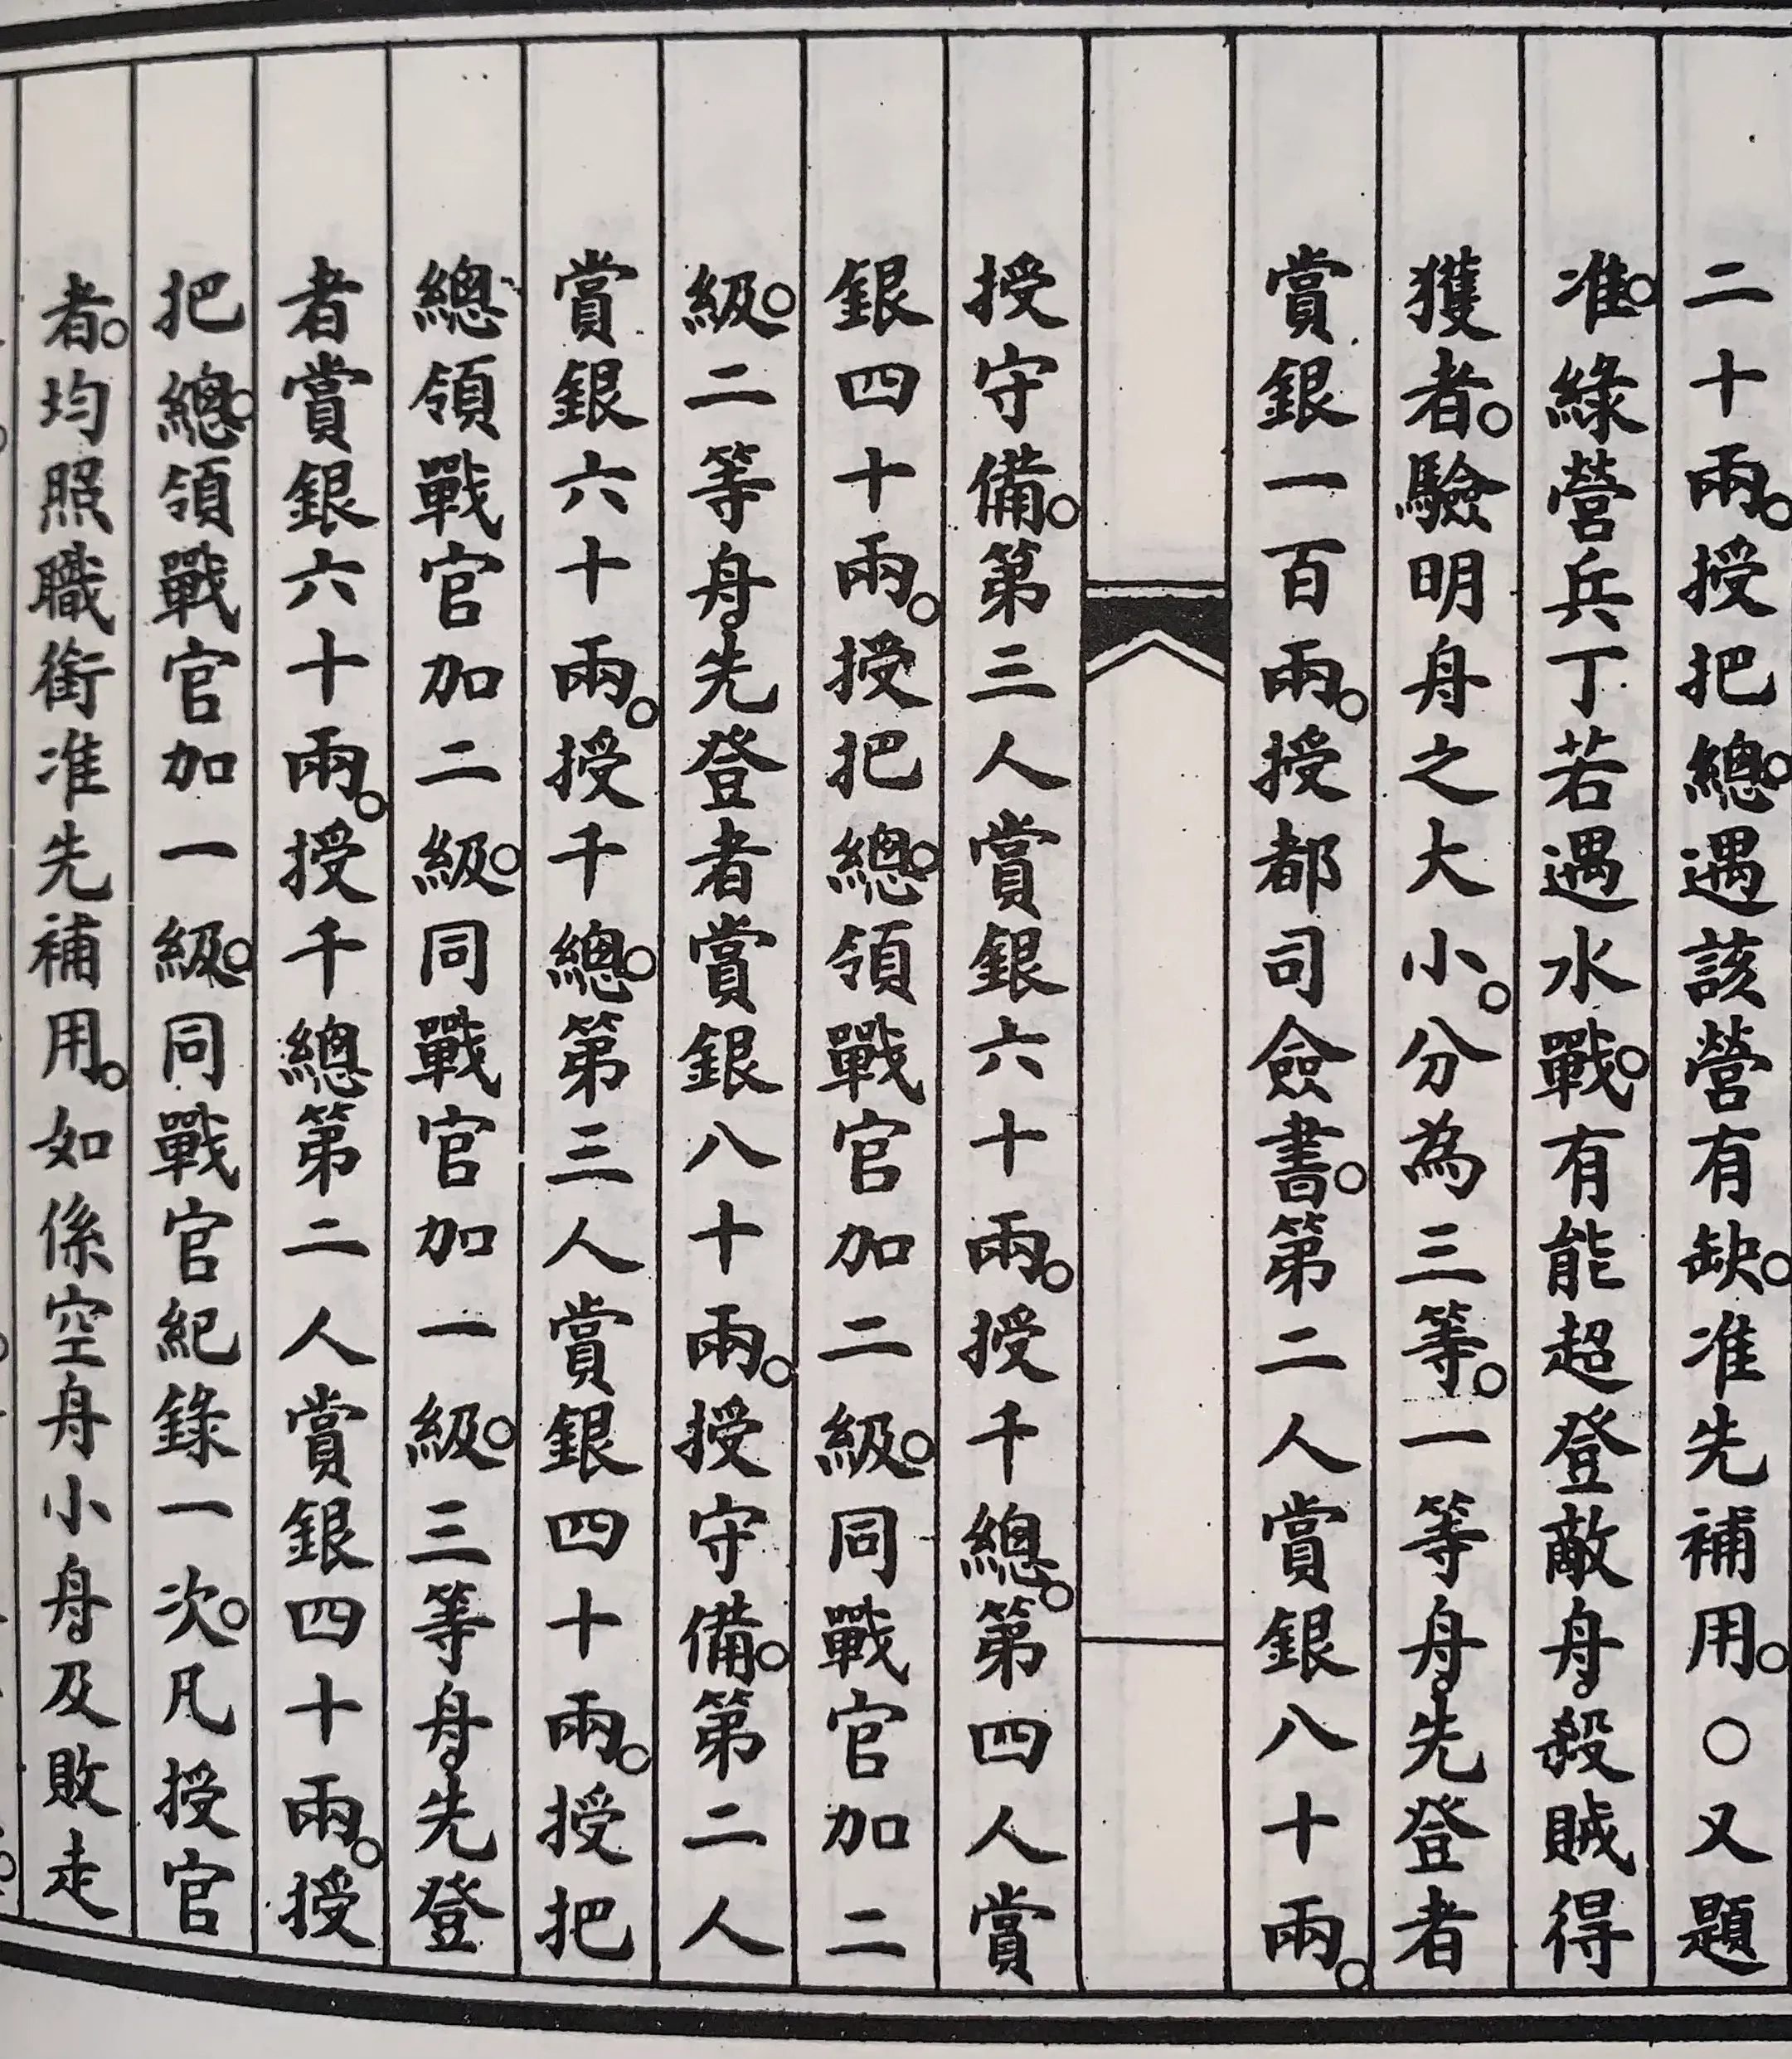 二十兩。授把總。遇該營有缺。准先補用。〇又題
准。綠營兵丁若遇水戰。有能超登敵舟殺賊得
獲者。驗明舟之大小。分為三等。一等舟先登者
賞銀一百兩。授都司僉書。第二人賞銀八十兩。
授守備。第三人賞銀六十兩。授千總。第四人賞
銀四十兩。授把總。領戰官加二級。同戰官加二
級。二等舟先登者賞銀八十兩。授守備。第二人
賞銀六十兩。授千總。第三人賞銀四十兩。授把
總領戰官加二級。同戰官加一級。三等舟先登
者賞銀六十兩。授千總第二人賞銀四十兩。授
把總。領戰官加一級。同戰官紀錄一次。凡授官
者。均照職銜准先補用。如係空舟小舟及敗走